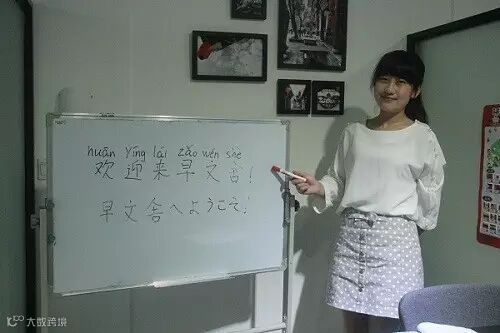 huān yíng lái zǎo wén shè
欢迎来早文舍!
早文舎へようこそ!
大数跨境